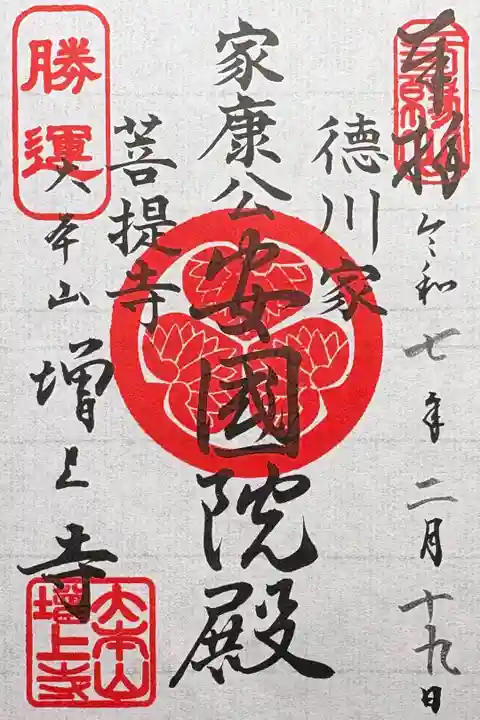 奉拝
令和七年二月十九日
徳川家
家康公
安國院殿
菩提寺
勝運
大本山
増上寺
大本山
増上寺